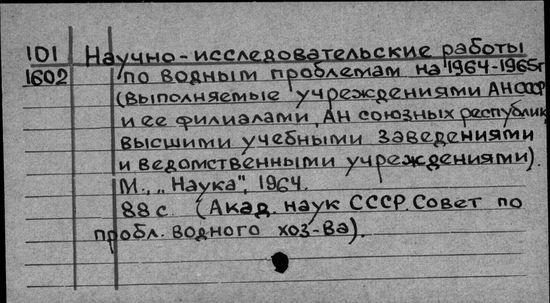 101 Научно-исследовательские работы
1602 по водным проблемам на 1964-1965г
(выполняемые учреждениями АН СССР
и ее филиалами, АН союзных республик
высшими учебными заведениями
и ведомственными учреждениями).
М., „Наука", 1964.
88 с. (Акад. наук СССР. Совет по
пробл. водного хоз-ва).